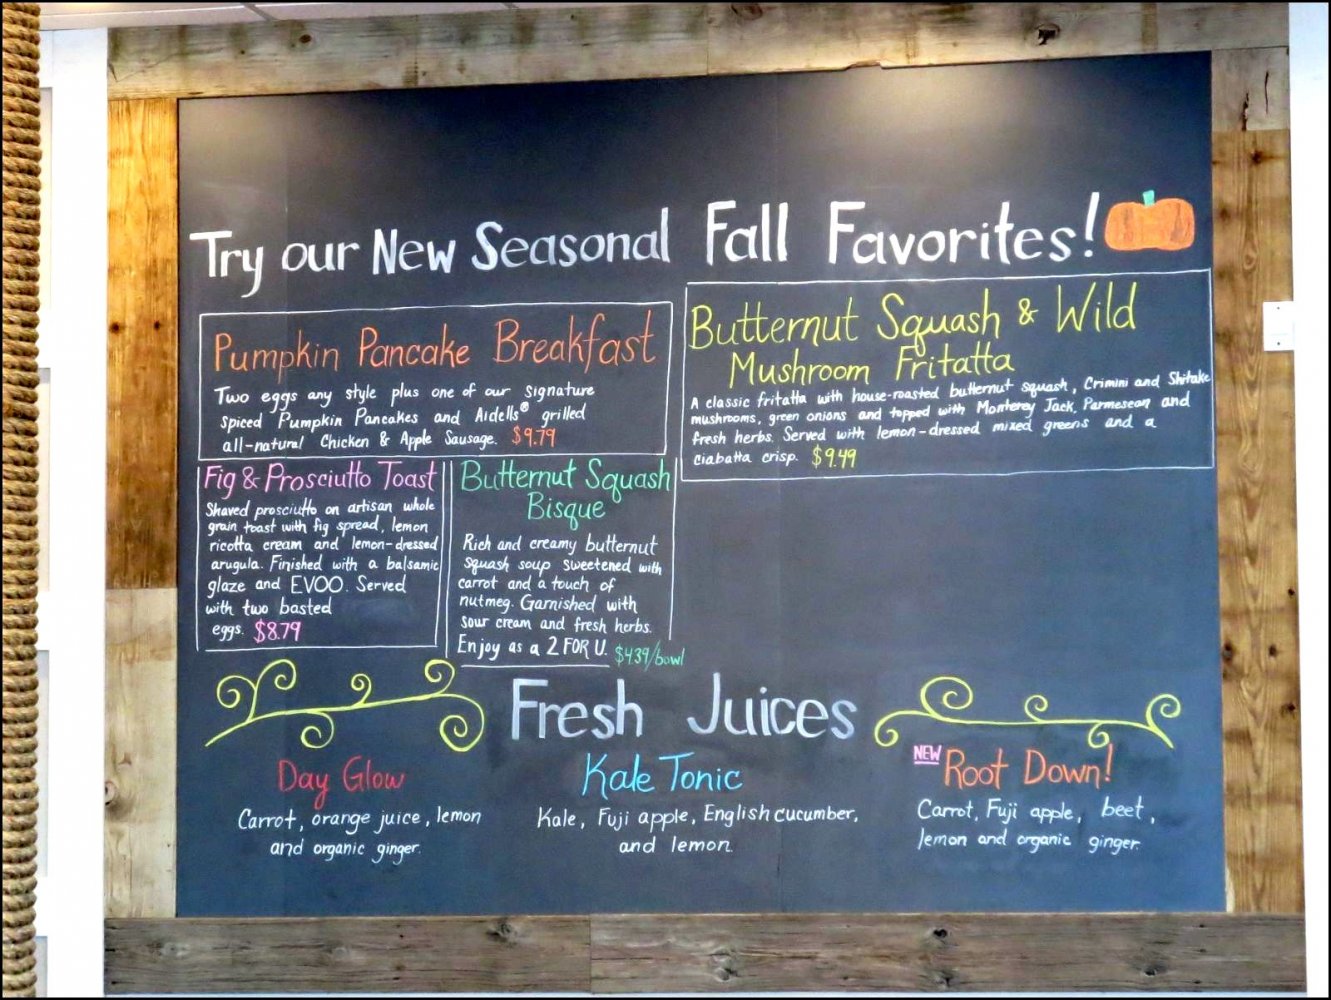 Try our New Seasonal Fall Favorites!
Pumpkin Pancake Breakfast
Two eggs any style plus one of our signature
spiced Pumpkin Pancakes and Aidells® grilled
all-natural Chicken & Apple Sausage. $9.79
Butternut Squash & Wild
Mushroom Fritatta
A classic fritatta with house-roasted butternut squash, Crimini and Shitake
mushrooms, green onions and topped with Monterey Jack, Parmesean and
fresh herbs. Served with lemon-dressed mixed greens and a
ciabatta crisp. $9.49
Fig & Prosciutto Toast
Shaved prosciutto on artisan whole
grain toast with fig spread, lemon
ricotta cream and lemon-dressed
arugula. Finished with a balsamic
glaze and EVOO. Served
with two basted
eggs. $8.79
Butternut Squash
Bisque
Rich and creamy butternut
squash soup sweetened with
carrot and a touch of
nutmeg. Garnished with
sour cream and fresh herbs.
Enjoy as a 2 FOR U. $4.39/bowl
Fresh Juices
Day Glow
Carrot, orange juice, lemon
and organic ginger.
Kale Tonic
Kale, Fuji apple, English cucumber,
and lemon.
NEW Root Down!
Carrot, Fuji apple, beet,
lemon and organic ginger.